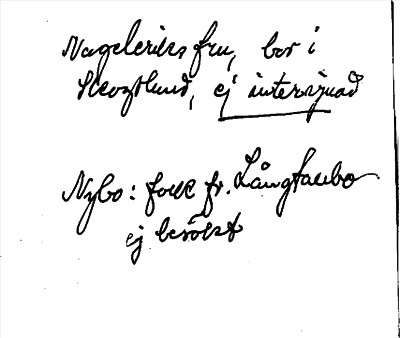 Nageleriks fru, bor i
Skogslund, ej intervjuad
Nybo: folk fr. Långfallbo
ej besökt